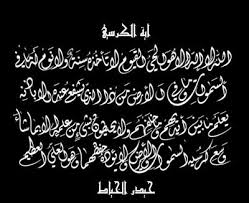 اية الكرسي
الله لا اله الا هو الحي القيوم لا تأخذه سنة ولا نوم له ما في
السموات وما في الارض من ذا الذي يشفع عنده الا باذنه
يعلم ما بين ايديهم وما خلفهم ولا يحيطون بشيء من علمه الا بما شاء
وسع كرسيه السموات والارض ولا يؤده حفظهما وهو العلي العظيم
حيدر الخياط